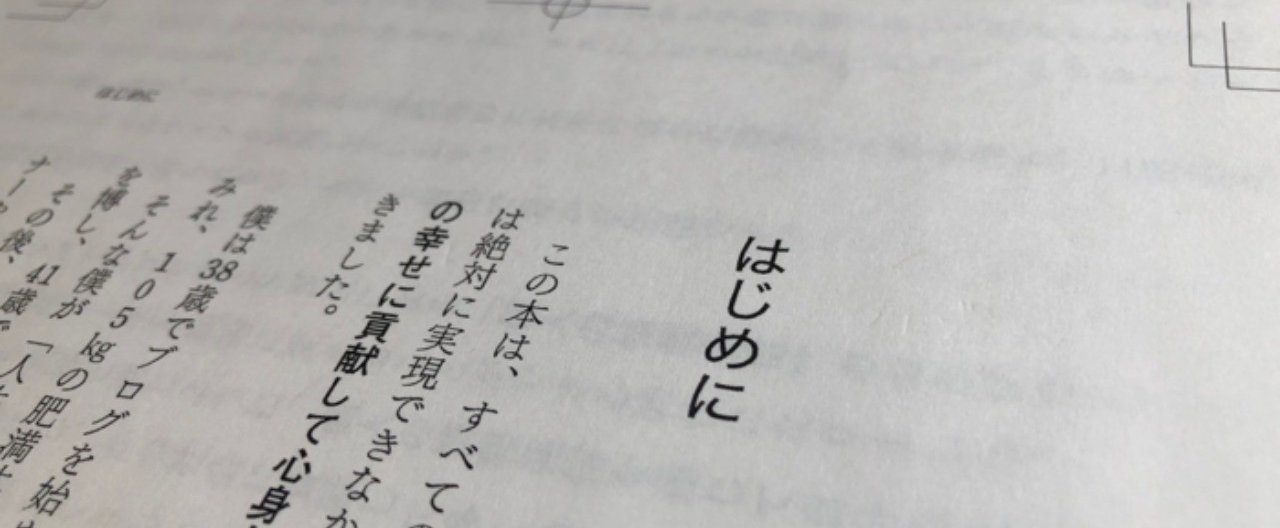 はじめに
はじめに
この本は、すべて
は絶対に実現できなか
の幸せに貢献して心身
きました。
僕は38歳でブログを始
みれ、
そんな105kgの肥満
を博し、僕が「人
その後、41歳で
ナー